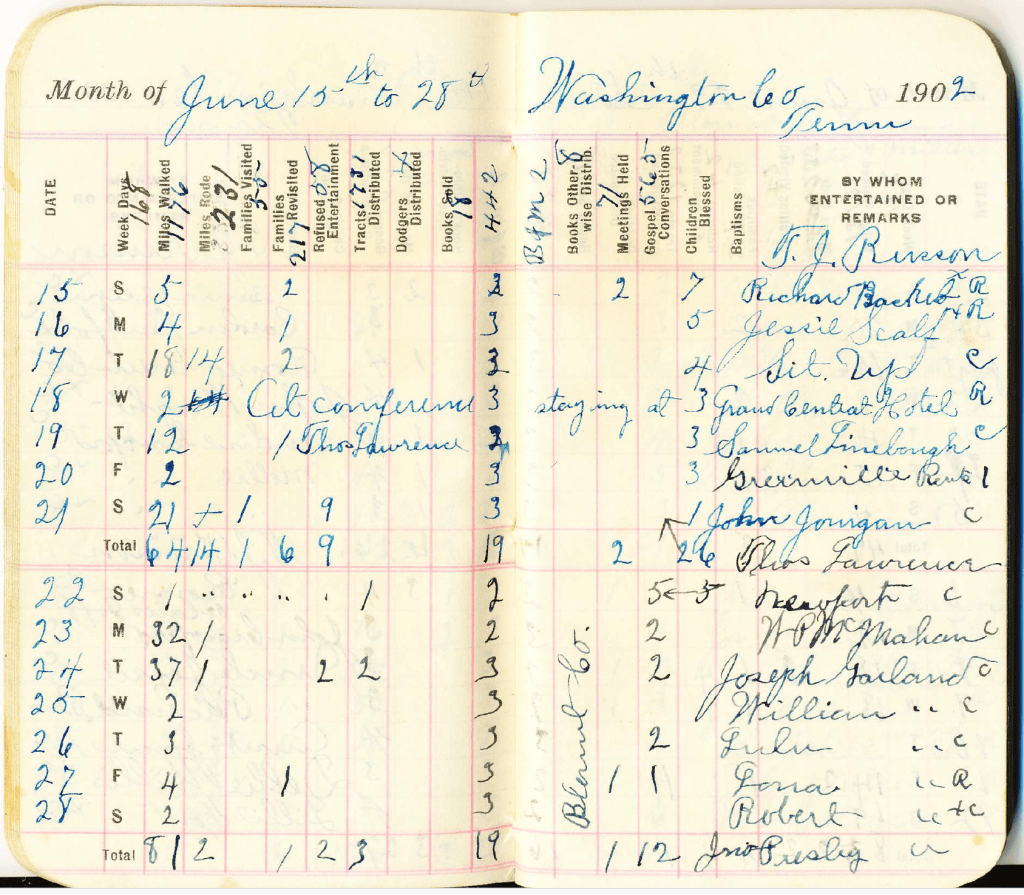 Month of June 15th to 28th Washington Co 1902
Tenn
DATE Week Days 168 Miles Walked 1176 Miles Rode 231 Families Visited 55 Families Revisited 217 Refused Entertainment 58 Tracts Distributed 1731 Dodgers Distributed 4 Books Sold 18 442 B of M 2 Books Otherwise Distrib. 8 Meetings Held 71 Gospel Conversations 565 Children Blessed Baptisms BY WHOM ENTERTAINED OR REMARKS
T. J. Russon
15 S 5 2 3 2 7 Richard R
16 M 4 1 3 5 Jessie Scalf + R
17 T 18 14 2 3 4 Sit. Up c
18 W 2 At conference 3 staying at 3 Grand Central Hotel R
19 T 12 1 Thos Lawrence 3 3 Samuel Linebough c
20 F 2 3 3 Greenville Route 1
21 S 21 + 1 9 3 1 John Jonigan c
Total 64 14 1 6 9 19 2 26 Thos Lawrence
22 S 1 " " " " 1 2 5 ← 5 Newport c
23 M 32 1 2 2 W P McMahan c
24 T 37 1 2 2 3 2 Joseph Garland c
25 W 2 3 William " " c
26 T 3 3 2 Lulu " " c
27 F 4 1 3 1 1 " R
28 S 2 3 Robert " + c
Blount Co.
Total 81 2 1 2 3 19 1 12 Jno Presley